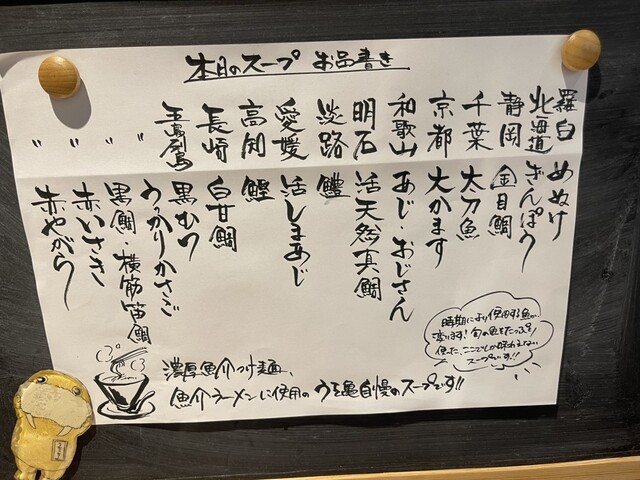 本日のスープ お品書き
羅臼 めぬけ
北海道 ぎんぽう
静岡 金目鯛
千葉 太刀魚
京都 大かます
和歌山 あじ・おじさん
明石 活天然真鯛
淡路 鱧
愛媛 活しまあじ
高知 鰹
長崎 白甘鯛
五島列島 黒むつ
〃 うっかりかさご
〃 黒鯛・横筋笛鯛
〃 赤いさき
〃 赤やがら
時期により使用する魚が、
変ります!旬の魚をたっぷり
使った、ここでしか味わえない
スープです!!
濃厚魚介つけ麺、
魚介ラーメンに使用のうを亀自慢のスープです!!